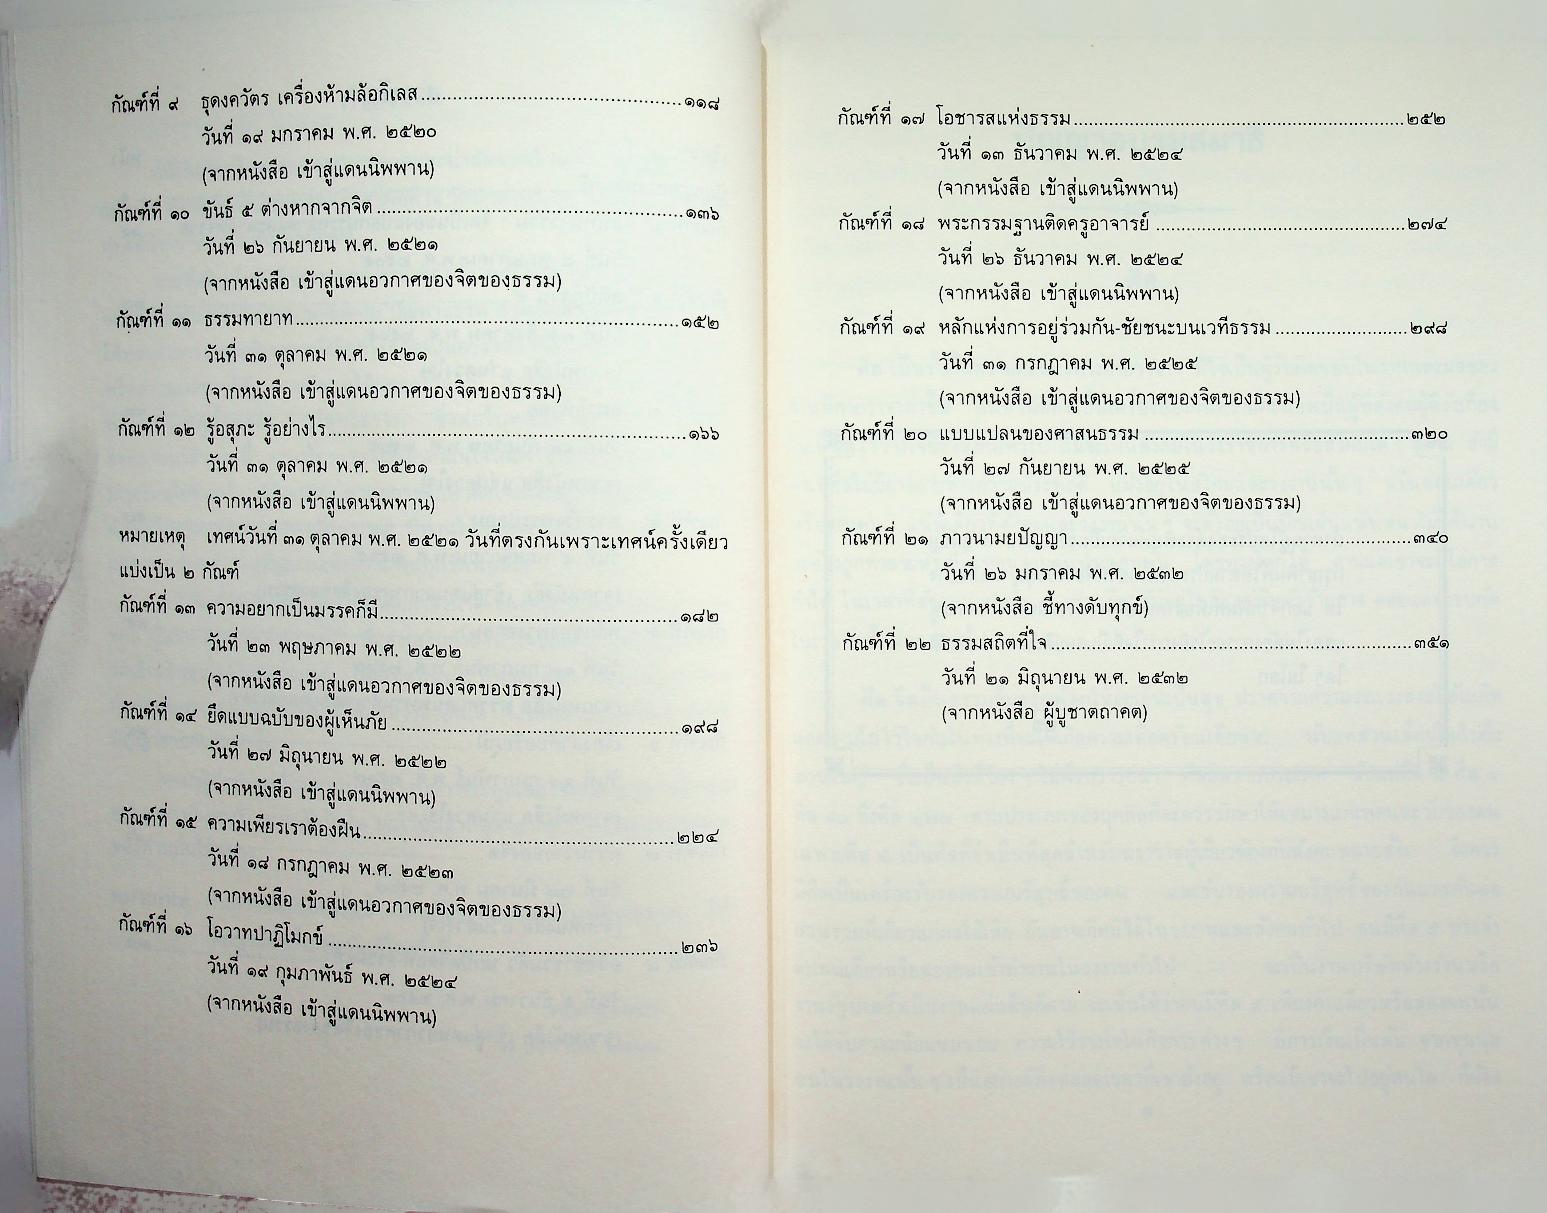 กัณฑ์ที่ ๙ ธุดงควัตร เครื่องห้ามล้อกิเลส....................................................๑๑๘
วันที่ ๑๙ มกราคม พ.ศ. ๒๕๒๐
(จากหนังสือ เข้าสู่แดนนิพพาน)
กัณฑ์ที่ ๑๐ ขันธ์ ๕ ต่างหากจากจิต............................................................๑๓๖
วันที่ ๒๖ กันยายน พ.ศ. ๒๕๒๑
(จากหนังสือ เข้าสู่แดนอวกาศของจิตของธรรม)
กัณฑ์ที่ ๑๑ ธรรมทายาท............................................................................๑๕๒
วันที่ ๓๑ ตุลาคม พ.ศ. ๒๕๒๑
(จากหนังสือ เข้าสู่แดนอวกาศของจิตของธรรม)
กัณฑ์ที่ ๑๒ รู้อสุภะ รู้อย่างไร......................................................................๑๖๖
วันที่ ๓๑ ตุลาคม พ.ศ. ๒๕๒๑
(จากหนังสือ เข้าสู่แดนนิพพาน)
หมายเหตุ เทศน์วันที่ ๓๑ ตุลาคม พ.ศ. ๒๕๒๑ วันที่ตรงกันเพราะเทศน์ครั้งเดียว
แบ่งเป็น ๒ กัณฑ์
กัณฑ์ที่ ๑๓ ความอยากเป็นมรรคก็มี...........................................................๑๘๒
วันที่ ๒๓ พฤษภาคม พ.ศ. ๒๕๒๒
(จากหนังสือ เข้าสู่แดนอวกาศของจิตของธรรม)
กัณฑ์ที่ ๑๔ ยึดแบบฉบับของผู้เห็นภัย.........................................................๑๙๘
วันที่ ๒๗ มิถุนายน พ.ศ. ๒๕๒๒
(จากหนังสือ เข้าสู่แดนนิพพาน)
กัณฑ์ที่ ๑๕ ความเพียรเราต้องฝืน..............................................................๒๒๔
วันที่ ๑๘ กรกฎาคม พ.ศ. ๒๕๒๓
(จากหนังสือ เข้าสู่แดนอวกาศของจิตของธรรม)
กัณฑ์ที่ ๑๖ โอวาทปาฏิโมกข์.....................................................................๒๓๖
วันที่ ๑๙ กุมภาพันธ์ พ.ศ. ๒๕๒๔
(จากหนังสือ เข้าสู่แดนนิพพาน)
กัณฑ์ที่ ๑๗ โอชารสแห่งธรรม..................................................................๒๕๒
วันที่ ๑๓ ธันวาคม พ.ศ. ๒๕๒๔
(จากหนังสือ เข้าสู่แดนนิพพาน)
กัณฑ์ที่ ๑๘ พระกรรมฐานติดครูอาจารย์..................................................๒๗๔
วันที่ ๒๖ ธันวาคม พ.ศ. ๒๕๒๔
(จากหนังสือ เข้าสู่แดนนิพพาน)
กัณฑ์ที่ ๑๙ หลักแห่งการอยู่ร่วมกัน-ชัยชนะบนเวทีธรรม..........................๒๙๘
วันที่ ๓๑ กรกฎาคม พ.ศ. ๒๕๒๕
(จากหนังสือ เข้าสู่แดนอวกาศของจิตของธรรม)
กัณฑ์ที่ ๒๐ แบบแปลนของศาสนธรรม.....................................................๓๒๐
วันที่ ๒๗ กันยายน พ.ศ. ๒๕๒๕
(จากหนังสือ เข้าสู่แดนอวกาศของจิตของธรรม)
กัณฑ์ที่ ๒๑ ภาวนามยปัญญา...................................................................๓๔๐
วันที่ ๒๖ มกราคม พ.ศ. ๒๕๓๒
(จากหนังสือ ชี้ทางดับทุกข์)
กัณฑ์ที่ ๒๒ ธรรมสถิตที่ใจ.......................................................................๓๕๑
วันที่ ๒๑ มิถุนายน พ.ศ. ๒๕๓๒
(จากหนังสือ ผู้บูชาตถาคต)